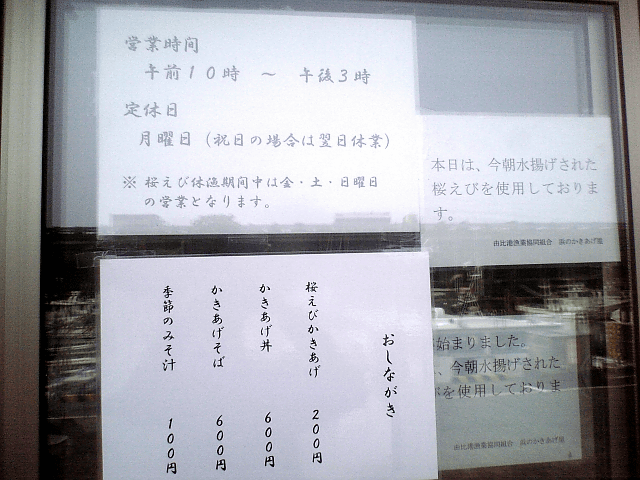 営業時間
午前１０時　～　午後３時
定休日
月曜日（祝日の場合は翌日休業）
※ 桜えび休漁期間中は金・土・日曜日
の営業となります。
本日は、今朝水揚げされた
桜えびを使用しておりま
す。
由比港漁業協同組合　浜のかきあげ屋
おしながき
桜えびかきあげ　２００円
かきあげ丼　６００円
かきあげそば　６００円
季節のみそ汁　１００円
始まりました。
、今朝水揚げされた
を使用しておりま
由比港漁業協同組合　浜のかきあげ屋